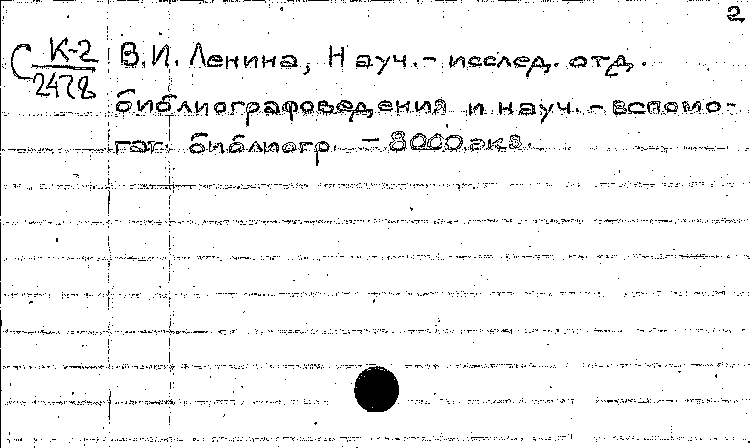 2
С К-2 В.И. Ленина, Науч.- исслед. отд.
2478 библиографоведения и науч. - вспомо-
гат. библиогр. - 8000 экз.